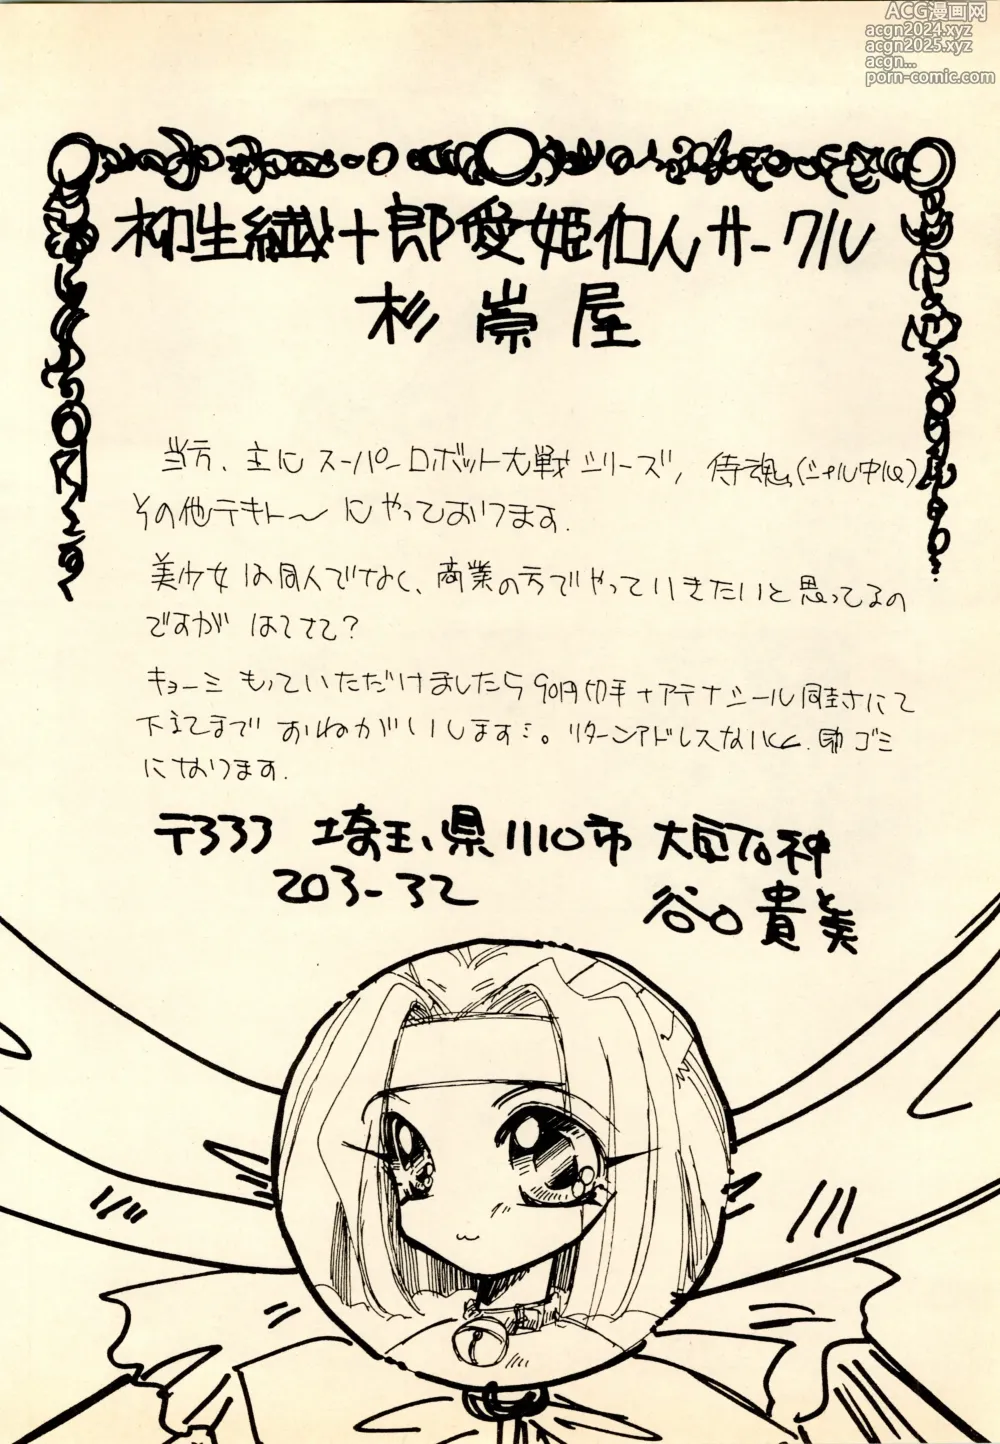 ACG漫画网
acgn2024.xyz
acgn2025.xyz
acgn...
porn-comic.com
柳生繊十郎愛姫個人サークル
杉崇屋
当方、主に スーパーロボット大戦シリーズ、侍魂、(シャル中心)
その他テキトーにやっております。
美少女は同人でなく、商業の方でやっていきたいと思ってるの
ですが はてさて?
キョーミもっていただけましたら90円切手+アテナシール同封にて
下記まで おねがいします。リターンアドレスないと、即ゴミ
になります。
〒333 埼玉県川口市
203-32
谷口貴美